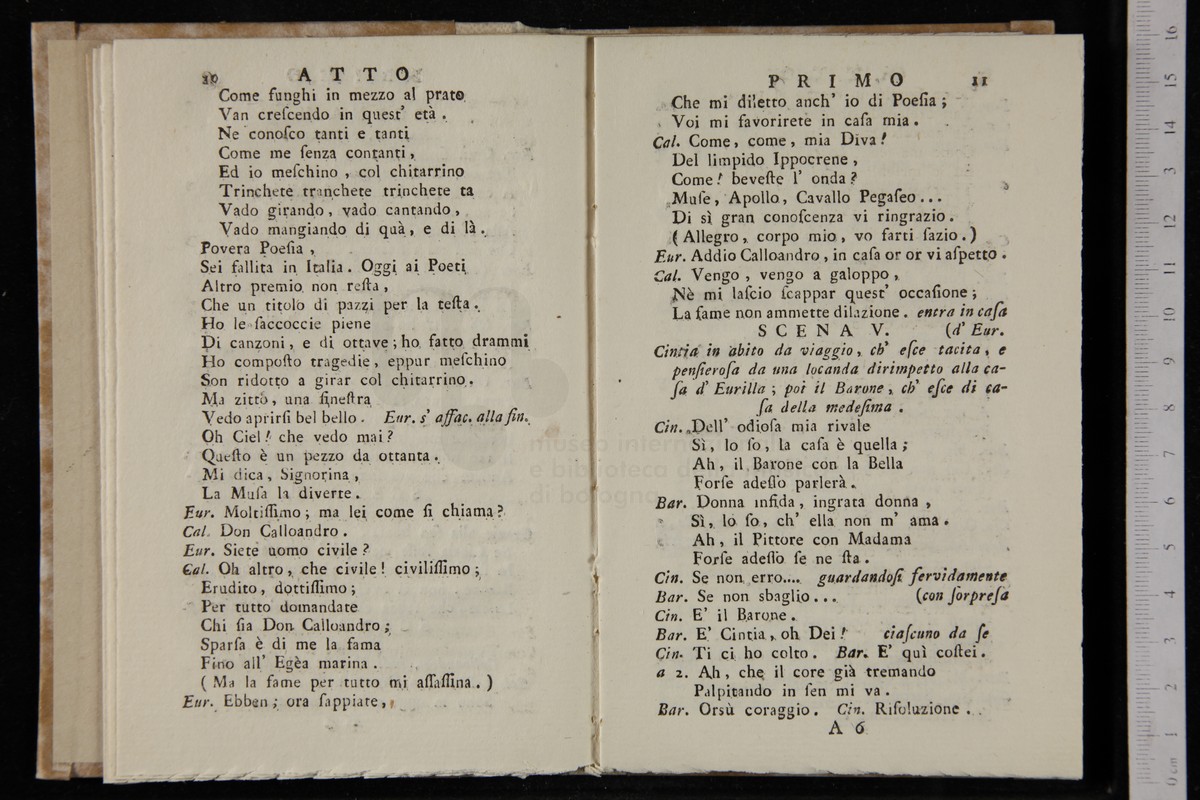 10 ATTO
Come funghi in mezzo al prato
Van creſcendo in queſt' età .
Ne conoſco tanti e tanti
Come me ſenza contanti ,
Ed io meſchino , col chitarrino
Trinchete tranchete trinchete ta
Vado girando , vado cantando ,
Vado mangiando di quà , e di là .
Povera Poeſia ,
Sei fallita in Italia . Oggi ai Poeti
Altro premio non reſta ,
Che un titolo di pazzi per la teſta .
Ho le ſaccoccie piene
Di canzoni , e di ottave ; ho fatto drammi
Ho compoſto tragedie , eppur meſchino
Son ridotto a girar col chitarrino .
Ma zitto , una fineſtra
Vedo aprirſi bel bello . Eur. s' affac. alla fin.
Oh Ciel ! che vedo mai ?
Queſto è un pezzo da ottanta .
Mi dica , Signorina ,
La Muſa la diverte .
Eur. Moltiſſimo ; ma lei come ſi chiama ?
Cal. Don Calloandro .
Eur. Siete uomo civile ?
Cal. Oh altro , che civile ! civiliſſimo ;
Erudito , dottiſſimo ;
Per tutto domandate
Chi ſia Don Calloandro ;
Sparſa è di me la fama
Fino all' Egèa marina .
( Ma la fame per tutto mi aſſaſſina . )
Eur. Ebben ; ora ſappiate ,
PRIMO 11
Che mi diletto anch' io di Poeſia ;
Voi mi favorirete in caſa mia .
Cal. Come , come , mia Diva !
Del limpido Ippocrene ,
Come ! beveſte l' onda ?
Muſe , Apollo , Cavallo Pegaſeo ...
Di sì gran conoſcenza vi ringrazio .
( Allegro , corpo mio , vo farti ſazio . )
Eur. Addio Calloandro , in caſa or or vi aſpetto .
Cal. Vengo , vengo a galoppo ,
Nè mi laſcio ſcappar queſt' occaſione ;
La fame non ammette dilazione . entra in caſa
SCENA V. (d' Eur.
Cintia in abito da viaggio , ch' eſce tacita , e
penſieroſa da una locanda dirimpetto alla ca-
ſa d' Eurilla ; poi il Barone , ch' eſce di ca-
ſa della medeſima .
Cin. Dell' odioſa mia rivale
Sì , lo ſo , la caſa è quella ;
Ah , il Barone con la Bella
Forſe adeſſo parlerà .
Bar. Donna infida , ingrata donna ,
Sì , lo ſo , ch' ella non m' ama .
Ah , il Pittore con Madama
Forſe adeſſo ſe ne ſta .
Cin. Se non erro.... guardandoſi fervidamente
Bar. Se non sbaglio ... (con ſorpreſa
Cin. E' il Barone .
Bar. E' Cintia , oh Dei ! ciaſcuno da ſe
Cin. Ti ci ho colto . Bar. E' quì coſtei .
a 2. Ah , che il core già tremando
Palpitando in ſen mi va .
Bar. Orsù coraggio . Cin. Riſoluzione .
A 6